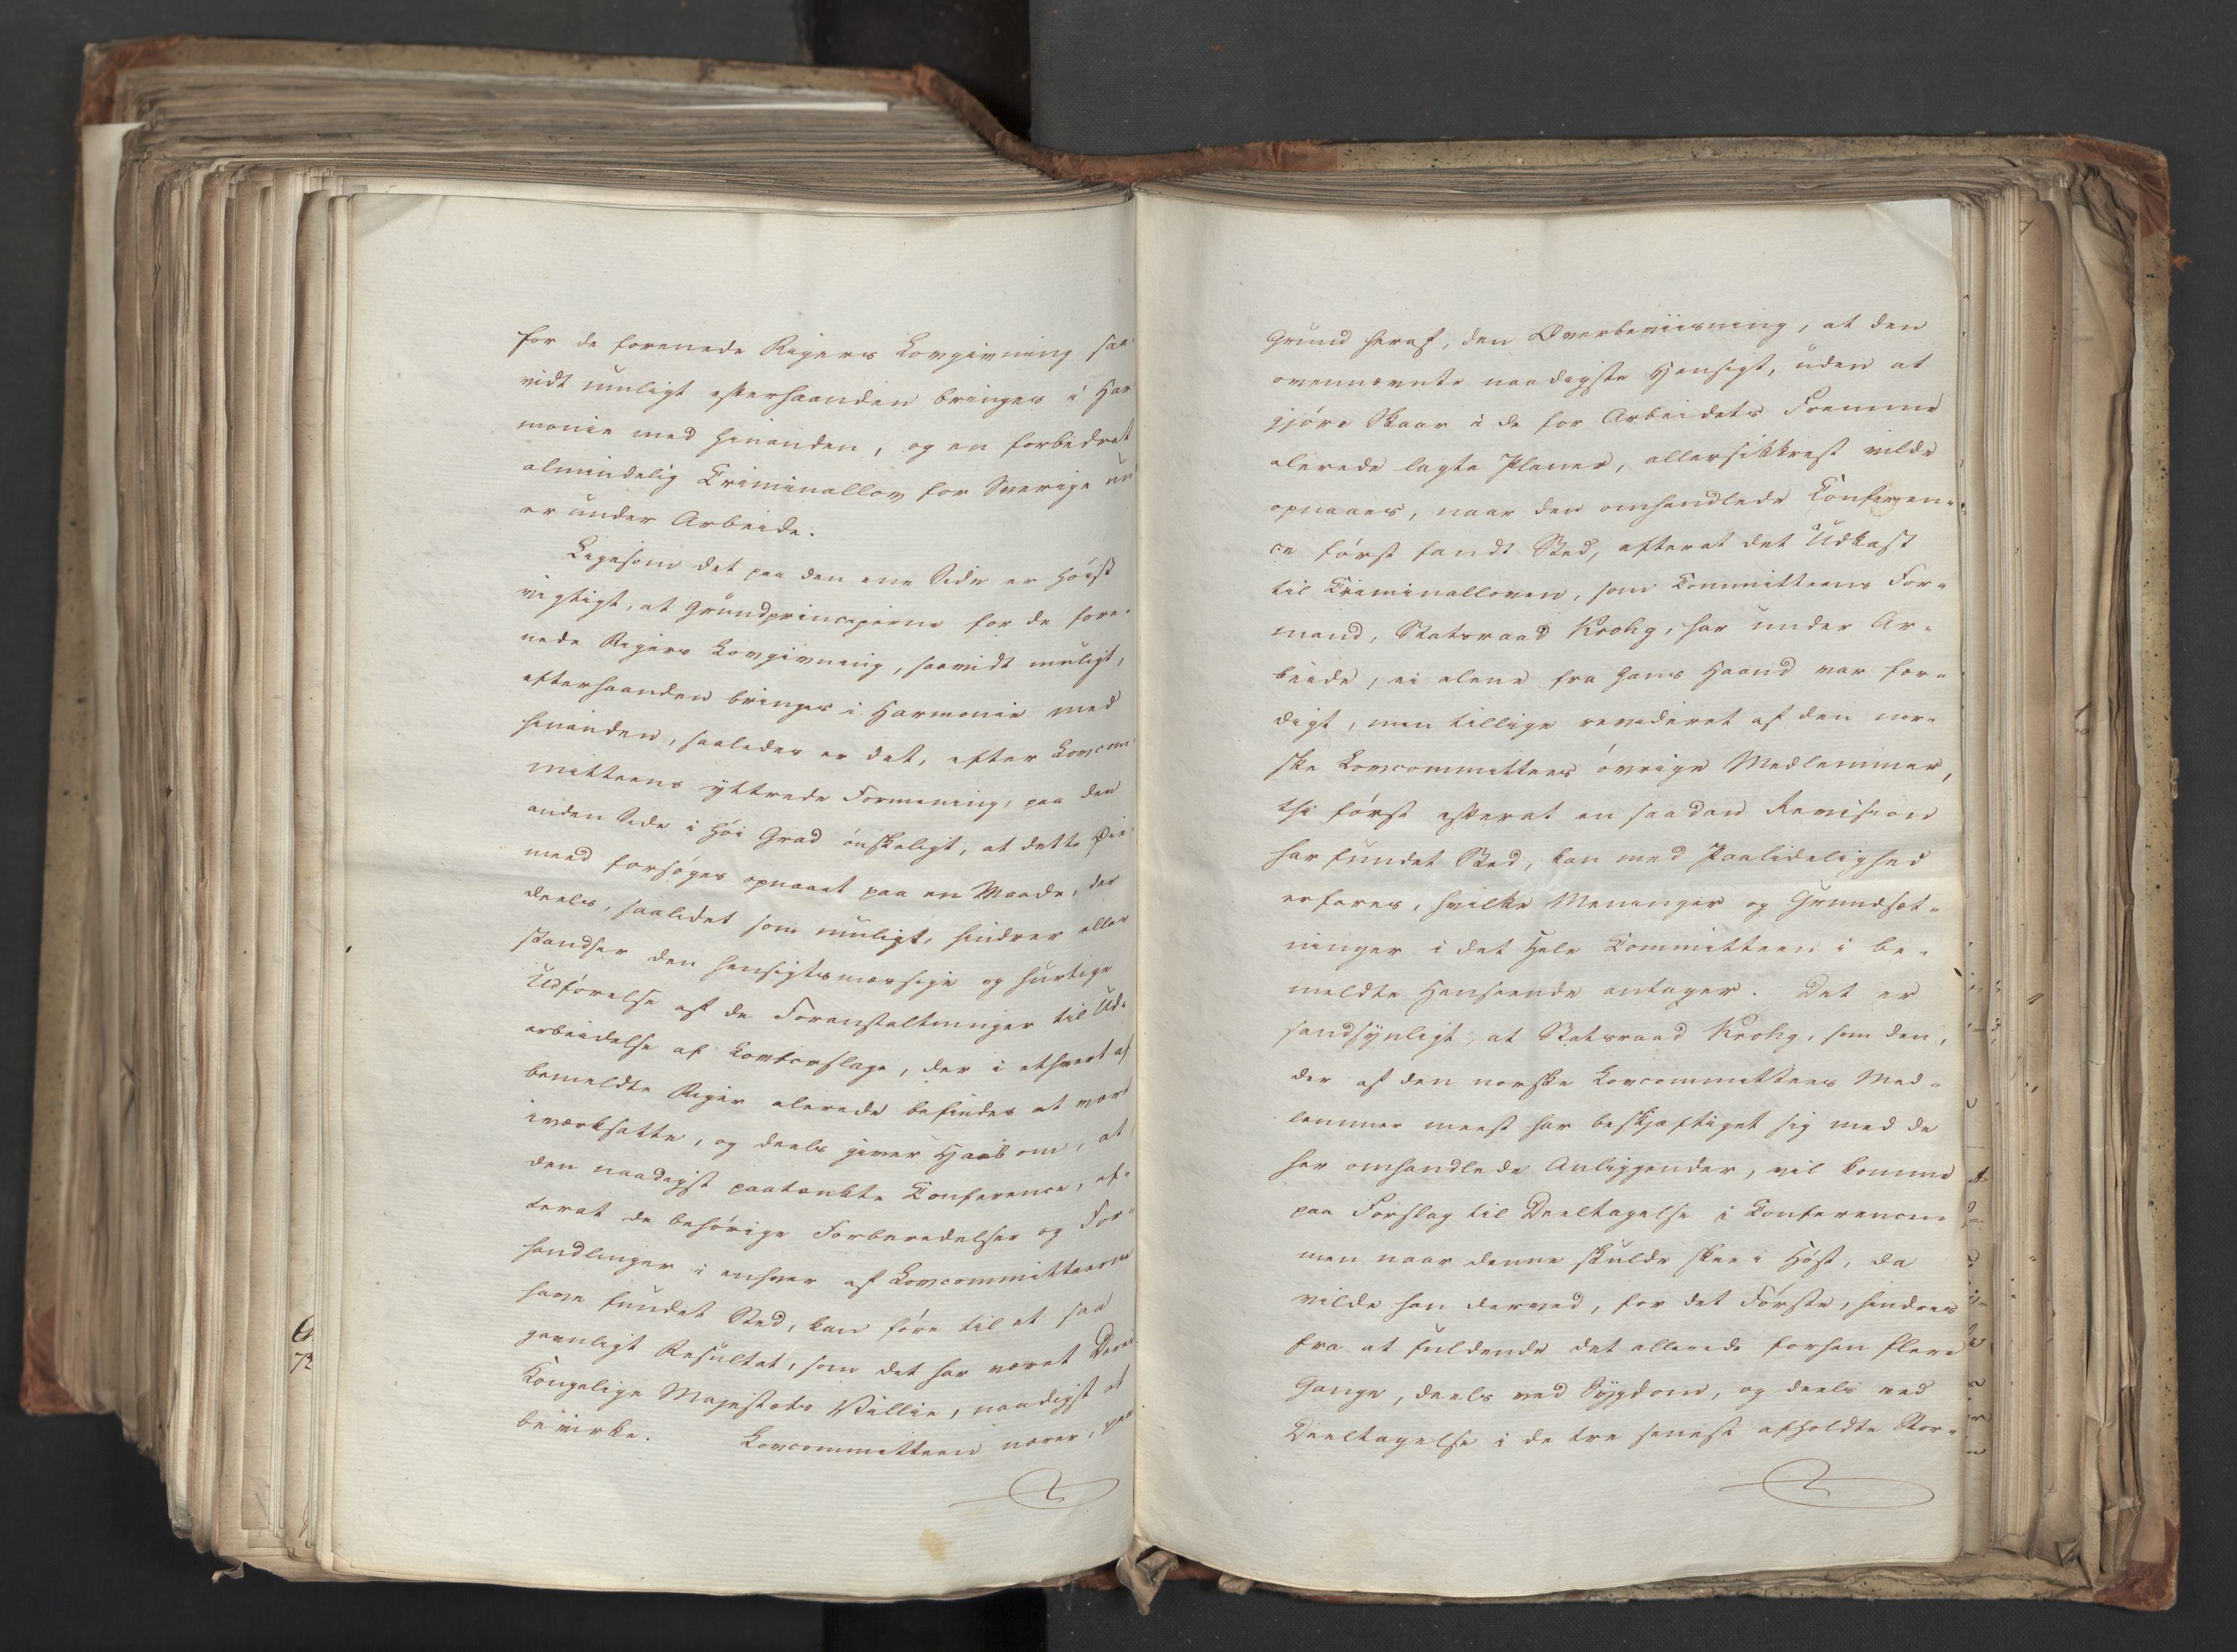 for de forenede Rigers Lovgivning saa
vidt muligt efterhaanden bringes i Har
monie med hinanden, og en forbedret
almindelig Criminallov for Sverige nu
er under Arbeide.
Ligesom det paa den ene Side er höist
vigtigt, at Grundprinciperne for de fore-
nede Rigers Lovgivning, saavidt muligt,
efterhaanden bringes i Harmonie med
hinanden, saaledes er det, efter Lovcom
mitteens yttrede Formening, paa den
anden Side i höi Grad önskeligt, at dette Øie
meed forsöges opnaaet paa en Maade, der
deels, saalidet som muligt, hindrer eller
standser den hensigtsmæssige og hurtige
Udförelse af de Foranstaltninger til Ud-
arbeidelse af Lovforslage, der i ethvert af
bemeldte Riger alerede befindes at være
iværksatte, og deels giver Haab om, at
den naadigst paatænkte Conference, ef-
terat de behörige Forberedelser og For-
handlinger i enhver af Lovcommitteerne
have fundet Sted, kan före til et saa
gavnligt Resultat, som det har været Deres
Kongelige Majestæts Villie, naadigst at
bevirke. Lovcommitteen nærer, paa
Grund heraf, den Overbeviisning, at den
ovennævnte naadigste Hensigt, uden at
gjöre Skaar i de for Arbeidets Fremme
alerede lagte Planer, allersikkrest vilde
opnaaes, naar den omhandlede Conferen-
ce först fandt Sted, efterat det Udkast
til Criminalloven, som Committeens For-
mand, Statsraad Krohg, har under Ar-
beide, ei alene fra hans Haand var fær-
digt, men tillige revideret af den nor-
ske Lovcommittees övrige Medlemmer,
thi först efterat en saadan Revision
har fundet Sted, kan med Paalidelighed
erfares, hvilke Meninger og Grundsæt-
ninger i det Hele Committeen i be-
meldte Henseende antager. Det er
sandsynligt, at Statsraad Krohg, som den,
der af den norske Lovcommittees Med-
lemmer meest har beskjæftiget sig med de
her omhandlede Anliggender, vil komme
paa Forslag til Deeltagelse i Conferencen
men naar denne skulde skee i Höst, da
vilde han derved, for det Förste, hindres
fra at fuldende det allerede forhen flere
Gange, deels ved Sygdom, og deels ved
Deeltagelse i de tre senest afholdte Stor-